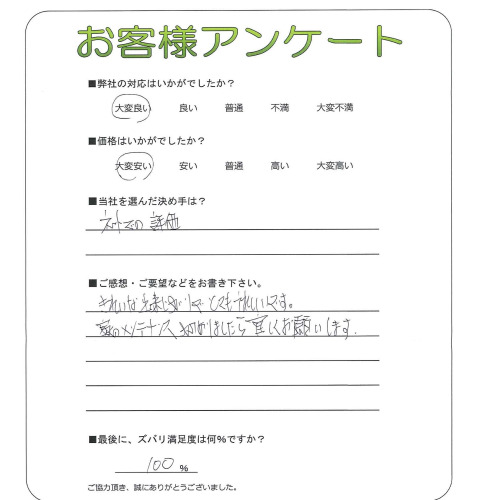 お客様アンケート
■弊社の対応はいかがでしたか？
大変良い 良い 普通 不満 大変不満
■価格はいかがでしたか？
大変安い 安い 普通 高い 大変高い
■当社を選んだ決め手は？
ネットでの 評価
■ご感想・ご要望などをお書き下さい。
きれいな とても うれしいです。
庭のメンテナンス しましたら 宜しくお願いします.
■最後に、ズバリ満足度は何％ですか？
100 %
ご協力頂き、誠にありがとうございました。